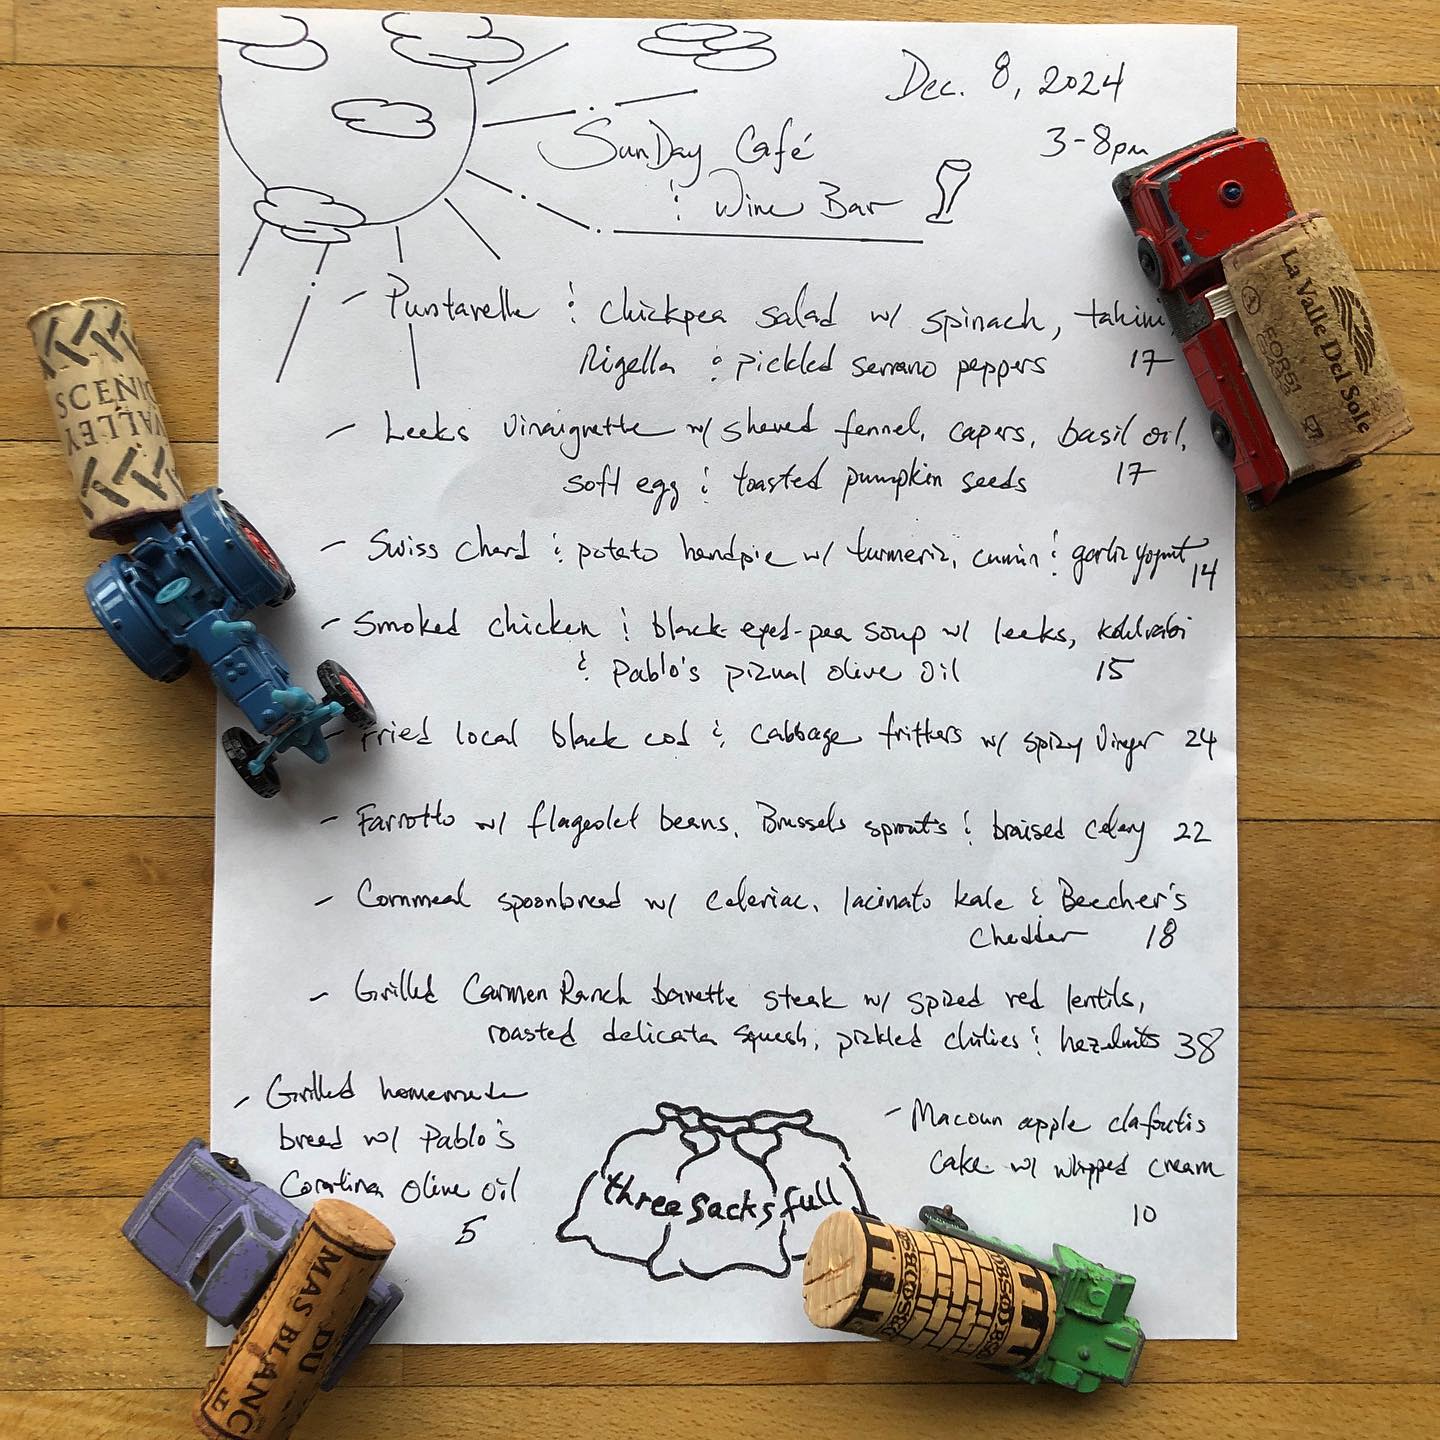 Dec. 8, 2024
3-8pm
SunDay Café
& Wine Bar
- Puntarelle & chickpea salad w/ spinach, tahini,
Nigella & pickled serrano peppers 17
- Leeks vinaigrette w/ shaved fennel, capers, basil oil,
soft egg & toasted pumpkin seeds 17
- Swiss chard & potato handpie w/ turmeric, cumin & garlic yogurt
14
- Smoked chicken & black-eyed-pea soup w/ leeks, kohlrabi
& Pablo's pizual olive oil 15
- Fried local black cod & cabbage fritters w/ spicy vinegar 24
- Farrotto w/ flageolet beans, Brussels sprouts & braised celery 22
- Cornmeal spoonbread w/ celeriac, lacinato kale & Beecher's
cheddar 18
- Grilled Carmen Ranch bavette steak w/ spiced red lentils,
roasted delicata squash, pickled chilies & hazelnuts 38
- Grilled homemade
bread w/ Pablo's
olive oil
5
- Macoun apple clafoutis
cake w/ whipped cream
10
three sacks full
SCENIC
VALLEY
La Valle Del Sole
MAS DU
BLANC